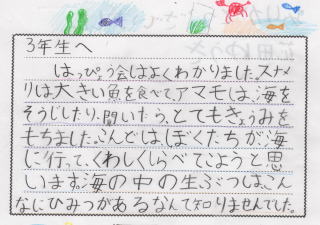 3年生へ
はっぴょう会はよくわかりました。スナメ
リは大きい魚を食べて、アマモは、海を
そうじしたり、聞いたら、とてもきょうみを
もちました。こんどは、ぼくたちが海
に行って、くわしくしらべてこようと思
います。海の中の生ぶつは、こん
なにひみつがあるなんて知りませんでした。